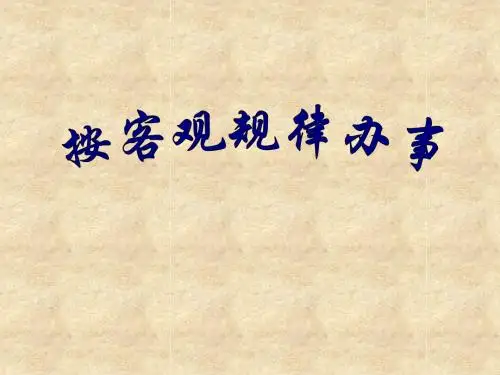 按客观规律办事